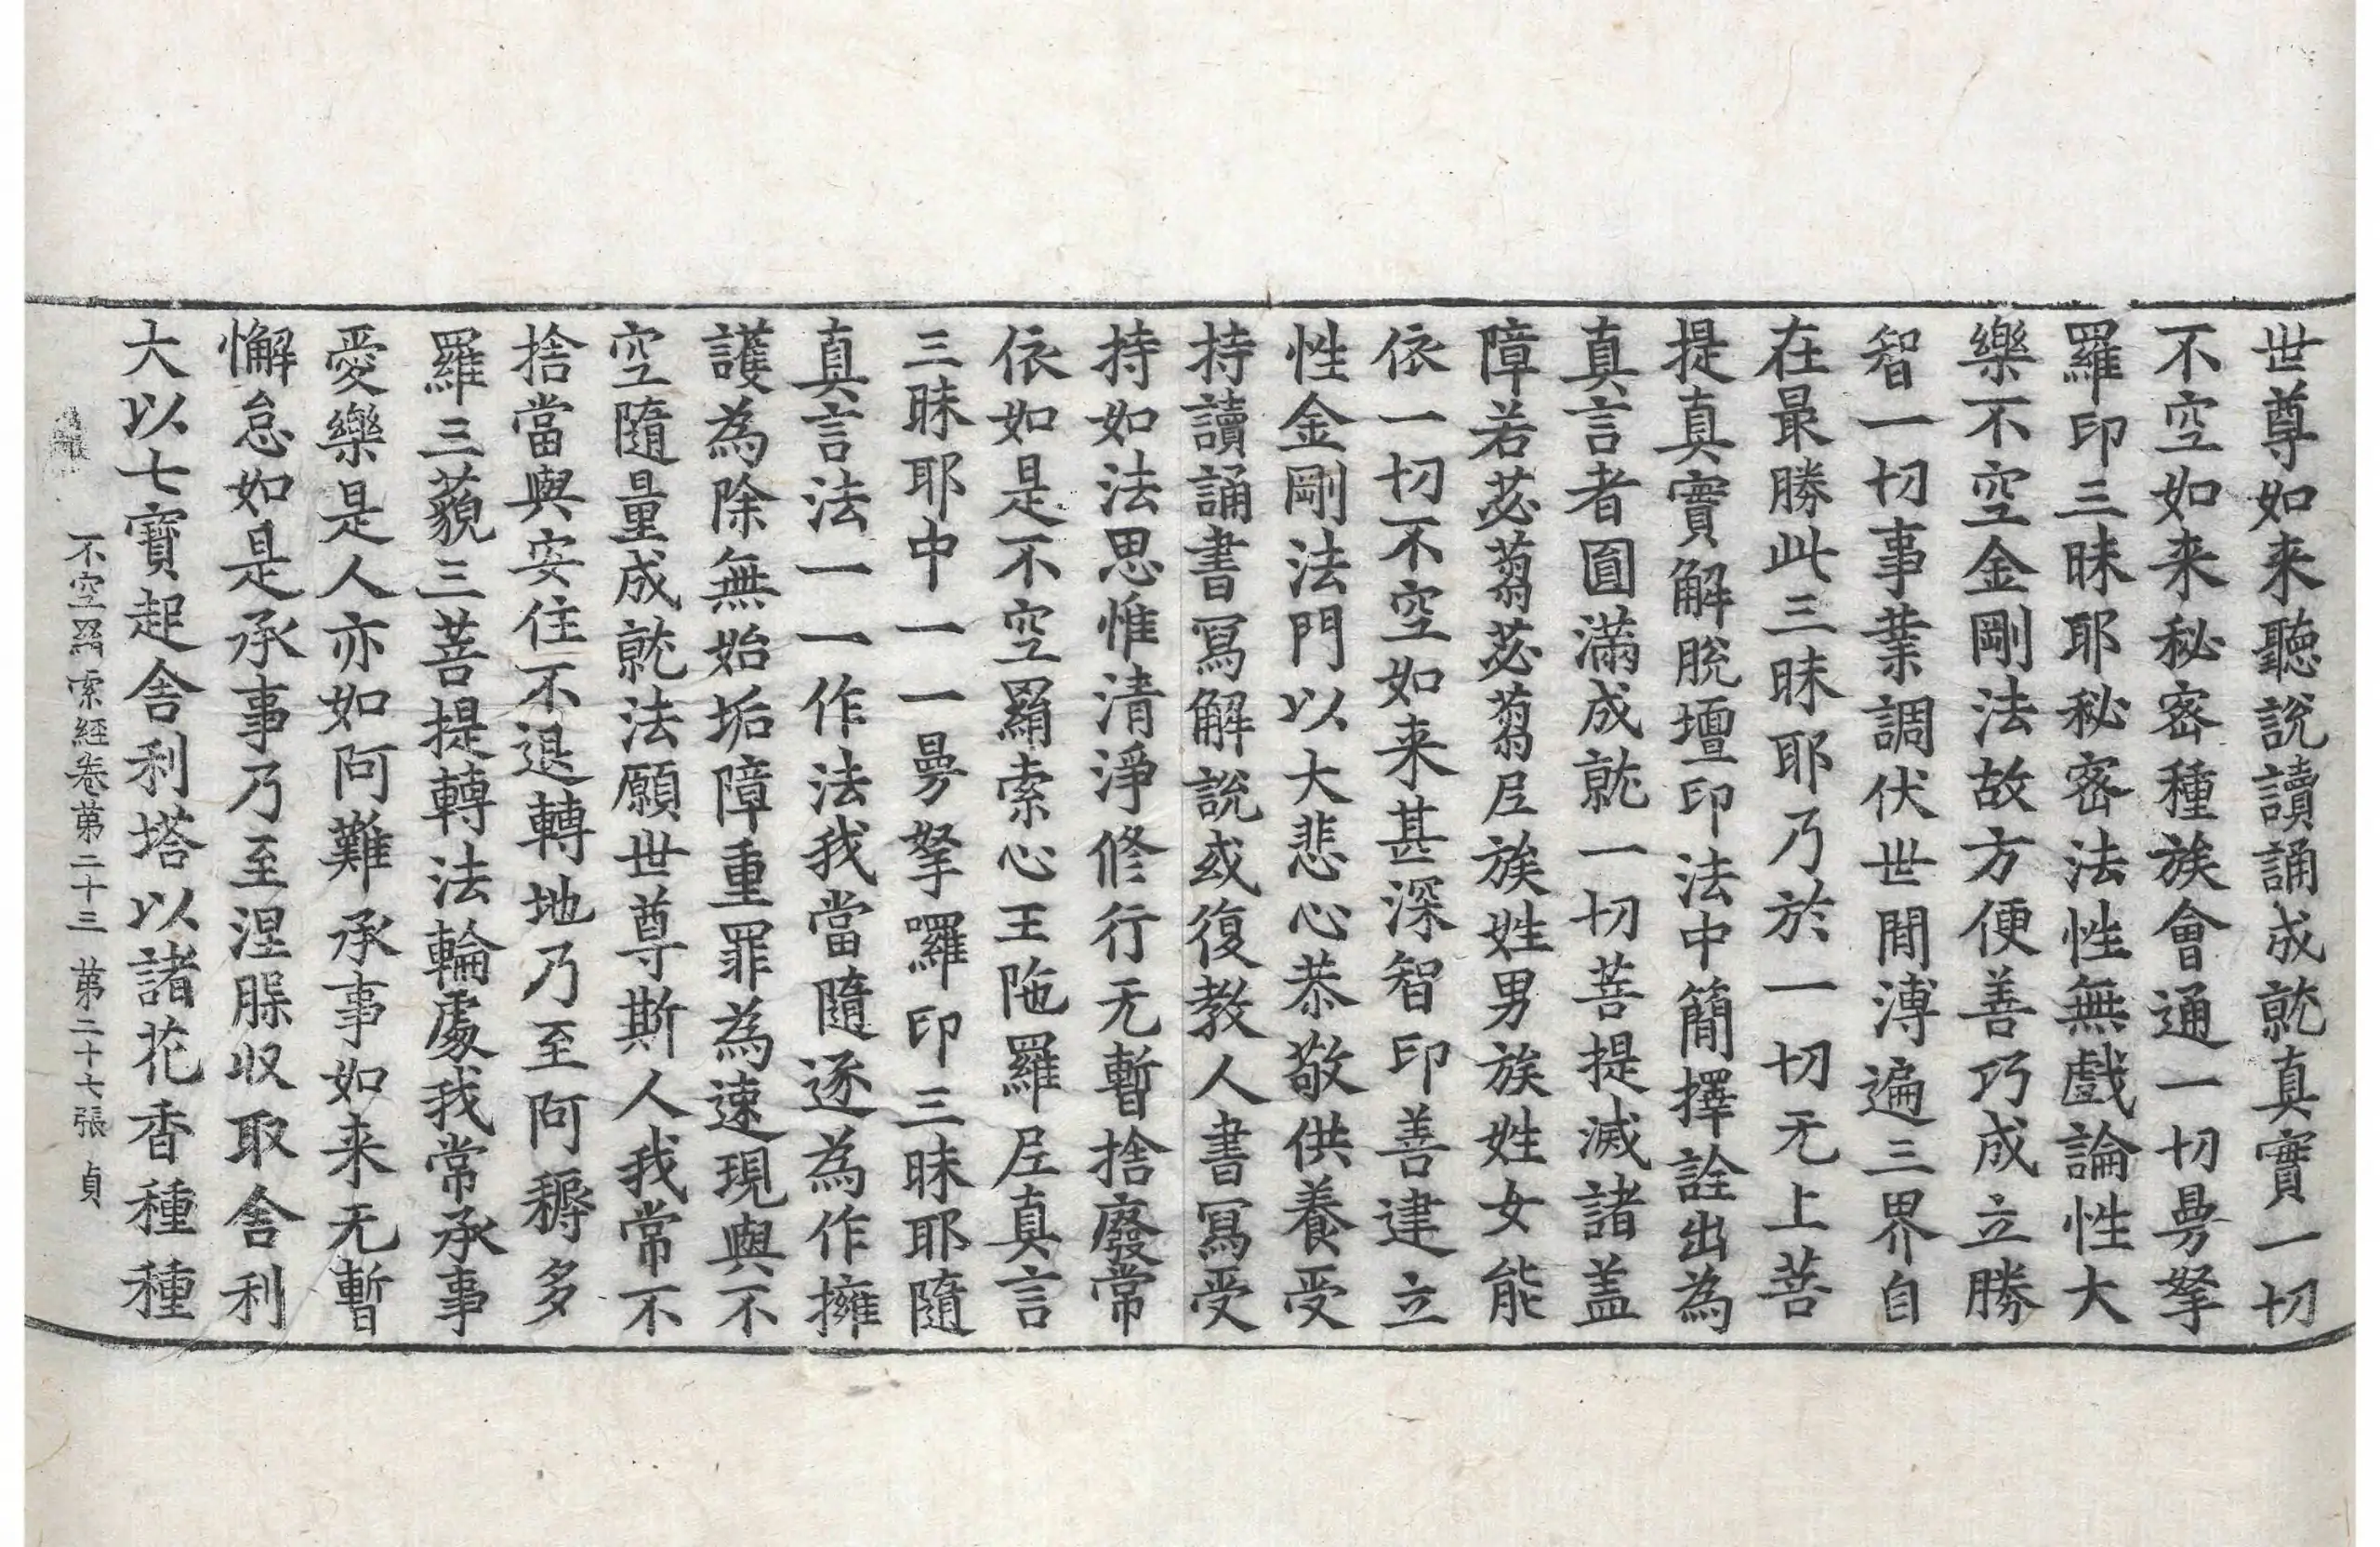 世尊如来聽說讀誦成就真實一切
不空如来秘密種族會通一切曼拏
羅印三昧耶秘密法性無戲論性大
樂不空金剛法故方便善巧成立勝
智一切事業調伏世間溥遍三界自
在最勝此三昧耶乃於一切无上菩
提真實解脫壇印法中簡擇詮出為
真言者圓滿成就一切菩提滅諸盖
障若苾蒭苾蒭尼族姓男族姓女能
依一切不空如来甚深智印善建立
性金剛法門以大悲心恭敬供養受
持讀誦書寫解說或復教人書寫受
持如法思惟清淨修行无暫捨廢常
依如是不空羂索心王陁羅尼真言
三昧耶中一一曼拏囉印三昧耶隨
真言法一一作法我當隨逐為作擁
護為除無始垢障重罪為速現與不
空隨量成就法願世尊斯人我常不
捨當與安住不退轉地乃至阿耨多
羅三藐三菩提轉法輪處我常承事
愛樂是人亦如阿難承事如来无暫
懈怠如是承事乃至涅槃收取舍利
大以七寶起舍利塔以諸花香種種
不空羂索經卷第二十三 第二十七張 貞